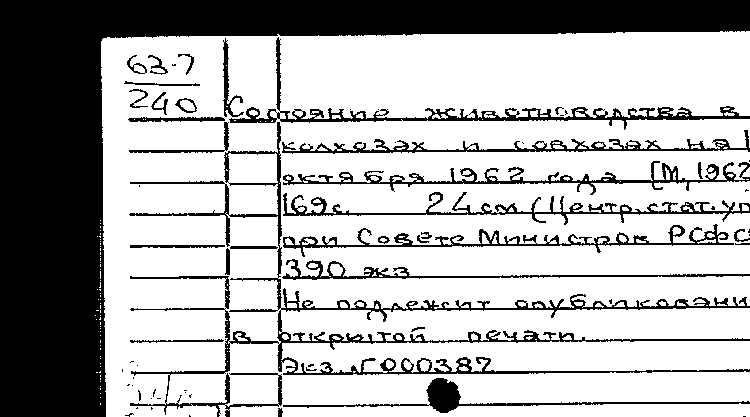 63-7
240
Состояние животноводства в
колхозах и совхозах на 1
октября 1962 года [М, 1962
169с. 24см (Центр.стат.уп
при Совете Министров РСФС
390 экз
Не подлежит опубликовани
в открытой печати.
Экз. № 000387